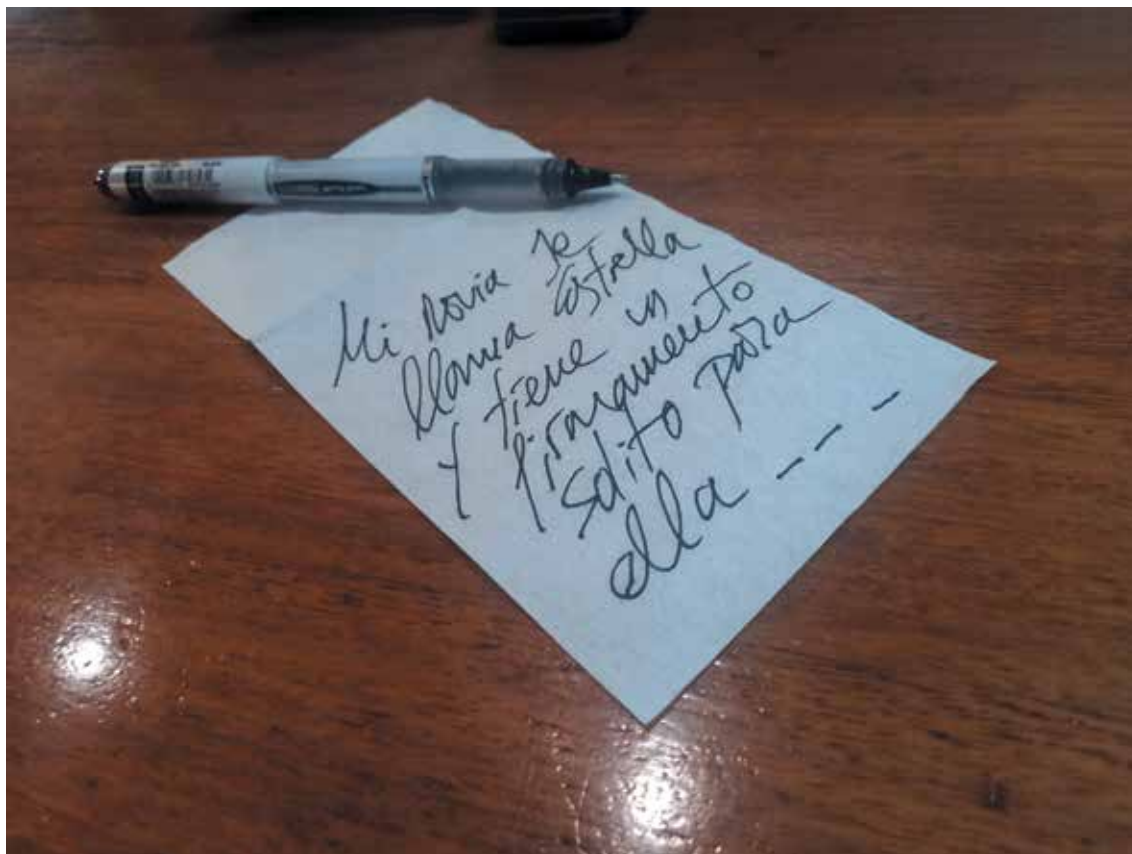 Mi novia se
llama Estrella
y tiene un
firmamento
solito para
ella ---